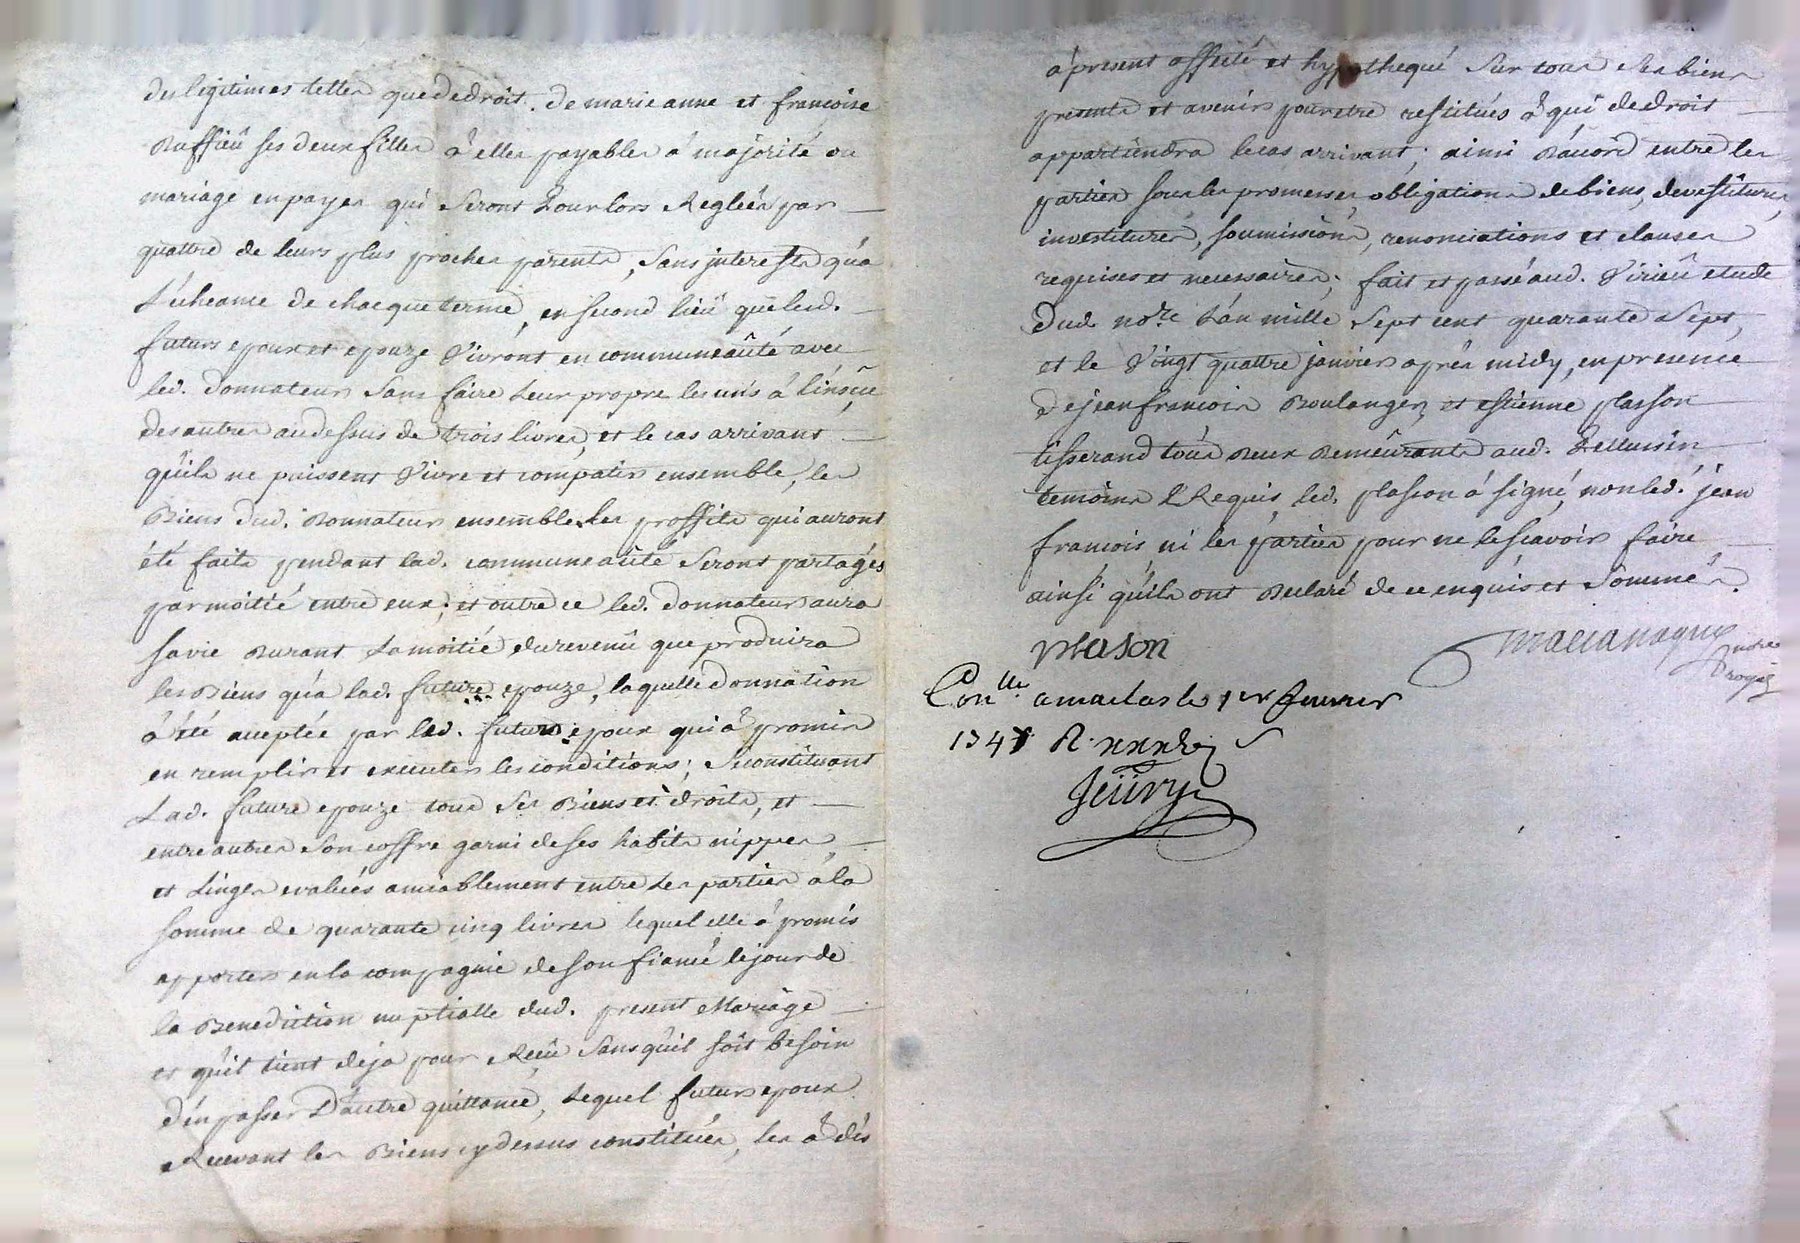 des legitimes telles que de droit. de marie anne et francoise
Ruffieü ses deux filles à elles payables à majorité ou
mariage en payes qui seront pour lors Reglées par
quattre de leurs plus proches parents, sans interests qu'a
L'écheance de chacque terme, en second lieü que lesd.
futurs epoux et epouze vivront en communeaûté avec
led. donnateur sans faire leur propre les uns à l'insçu
des autres au dessus de trois livres, et le cas arrivant
qu'ils ne puissent vivre et compatir ensemble, les
Biens dud. Donnateur ensemble les proffits qui auront
été faits pendant lad. communeaûté seront partagés
par moitié entre eux; et outre ce led. donnateur aura
sa vie Durant La moitié du revenû que produira
les Biens qu'a lad. future epouze, laquelle donnation
à été acceptée par led. futur epoux qui à promis
en remplir et executer les conditions; se constituant
Lad. future epouze tous ses Biens et droits, et
entre autres son coffre garni de ses habits nippes,
et Linges evalués amiablement entre Les parties à la
somme de quarante cinq livres lequel elle à promis
apporter en la compagnie de son fiancé le jour de
la Benediction nuptialle dud. present Mariage
et qu'il tient deja pour Reçû sans qu'il soit besoin
d'en passer D'autre quittance, Lequel futur epoux
Recevant les Biens cy dessus constitués, les à dés
à present affecté et hypothequé sur tous ses biens
presents et avenirs pour etre restitués à qui de droit
appartiendra le cas arrivant; ainsi D'acord entre les
parties sous les promesses, obligations de biens, devestitures,
investitures, soumissions, renonciations et clauses
requises et necessaires; fait et passé aud. Virieû etude
dud. nore L'an mille sept cent quarante sept,
et le vingt quattre janvier aprés midy, en presence
de jean francois Boulanger, et estienne plasson
tisserand tous Deux Demeurants aud.
temoins Requis, led. plasson à signé, non led. jean
francois ni les parties pour ne le scavoir faire
ainsi qu'ils ont Declaré de ce enquis et sommés.
plason
nore
royal
Conlle a le 1er fevrier
1747 R.